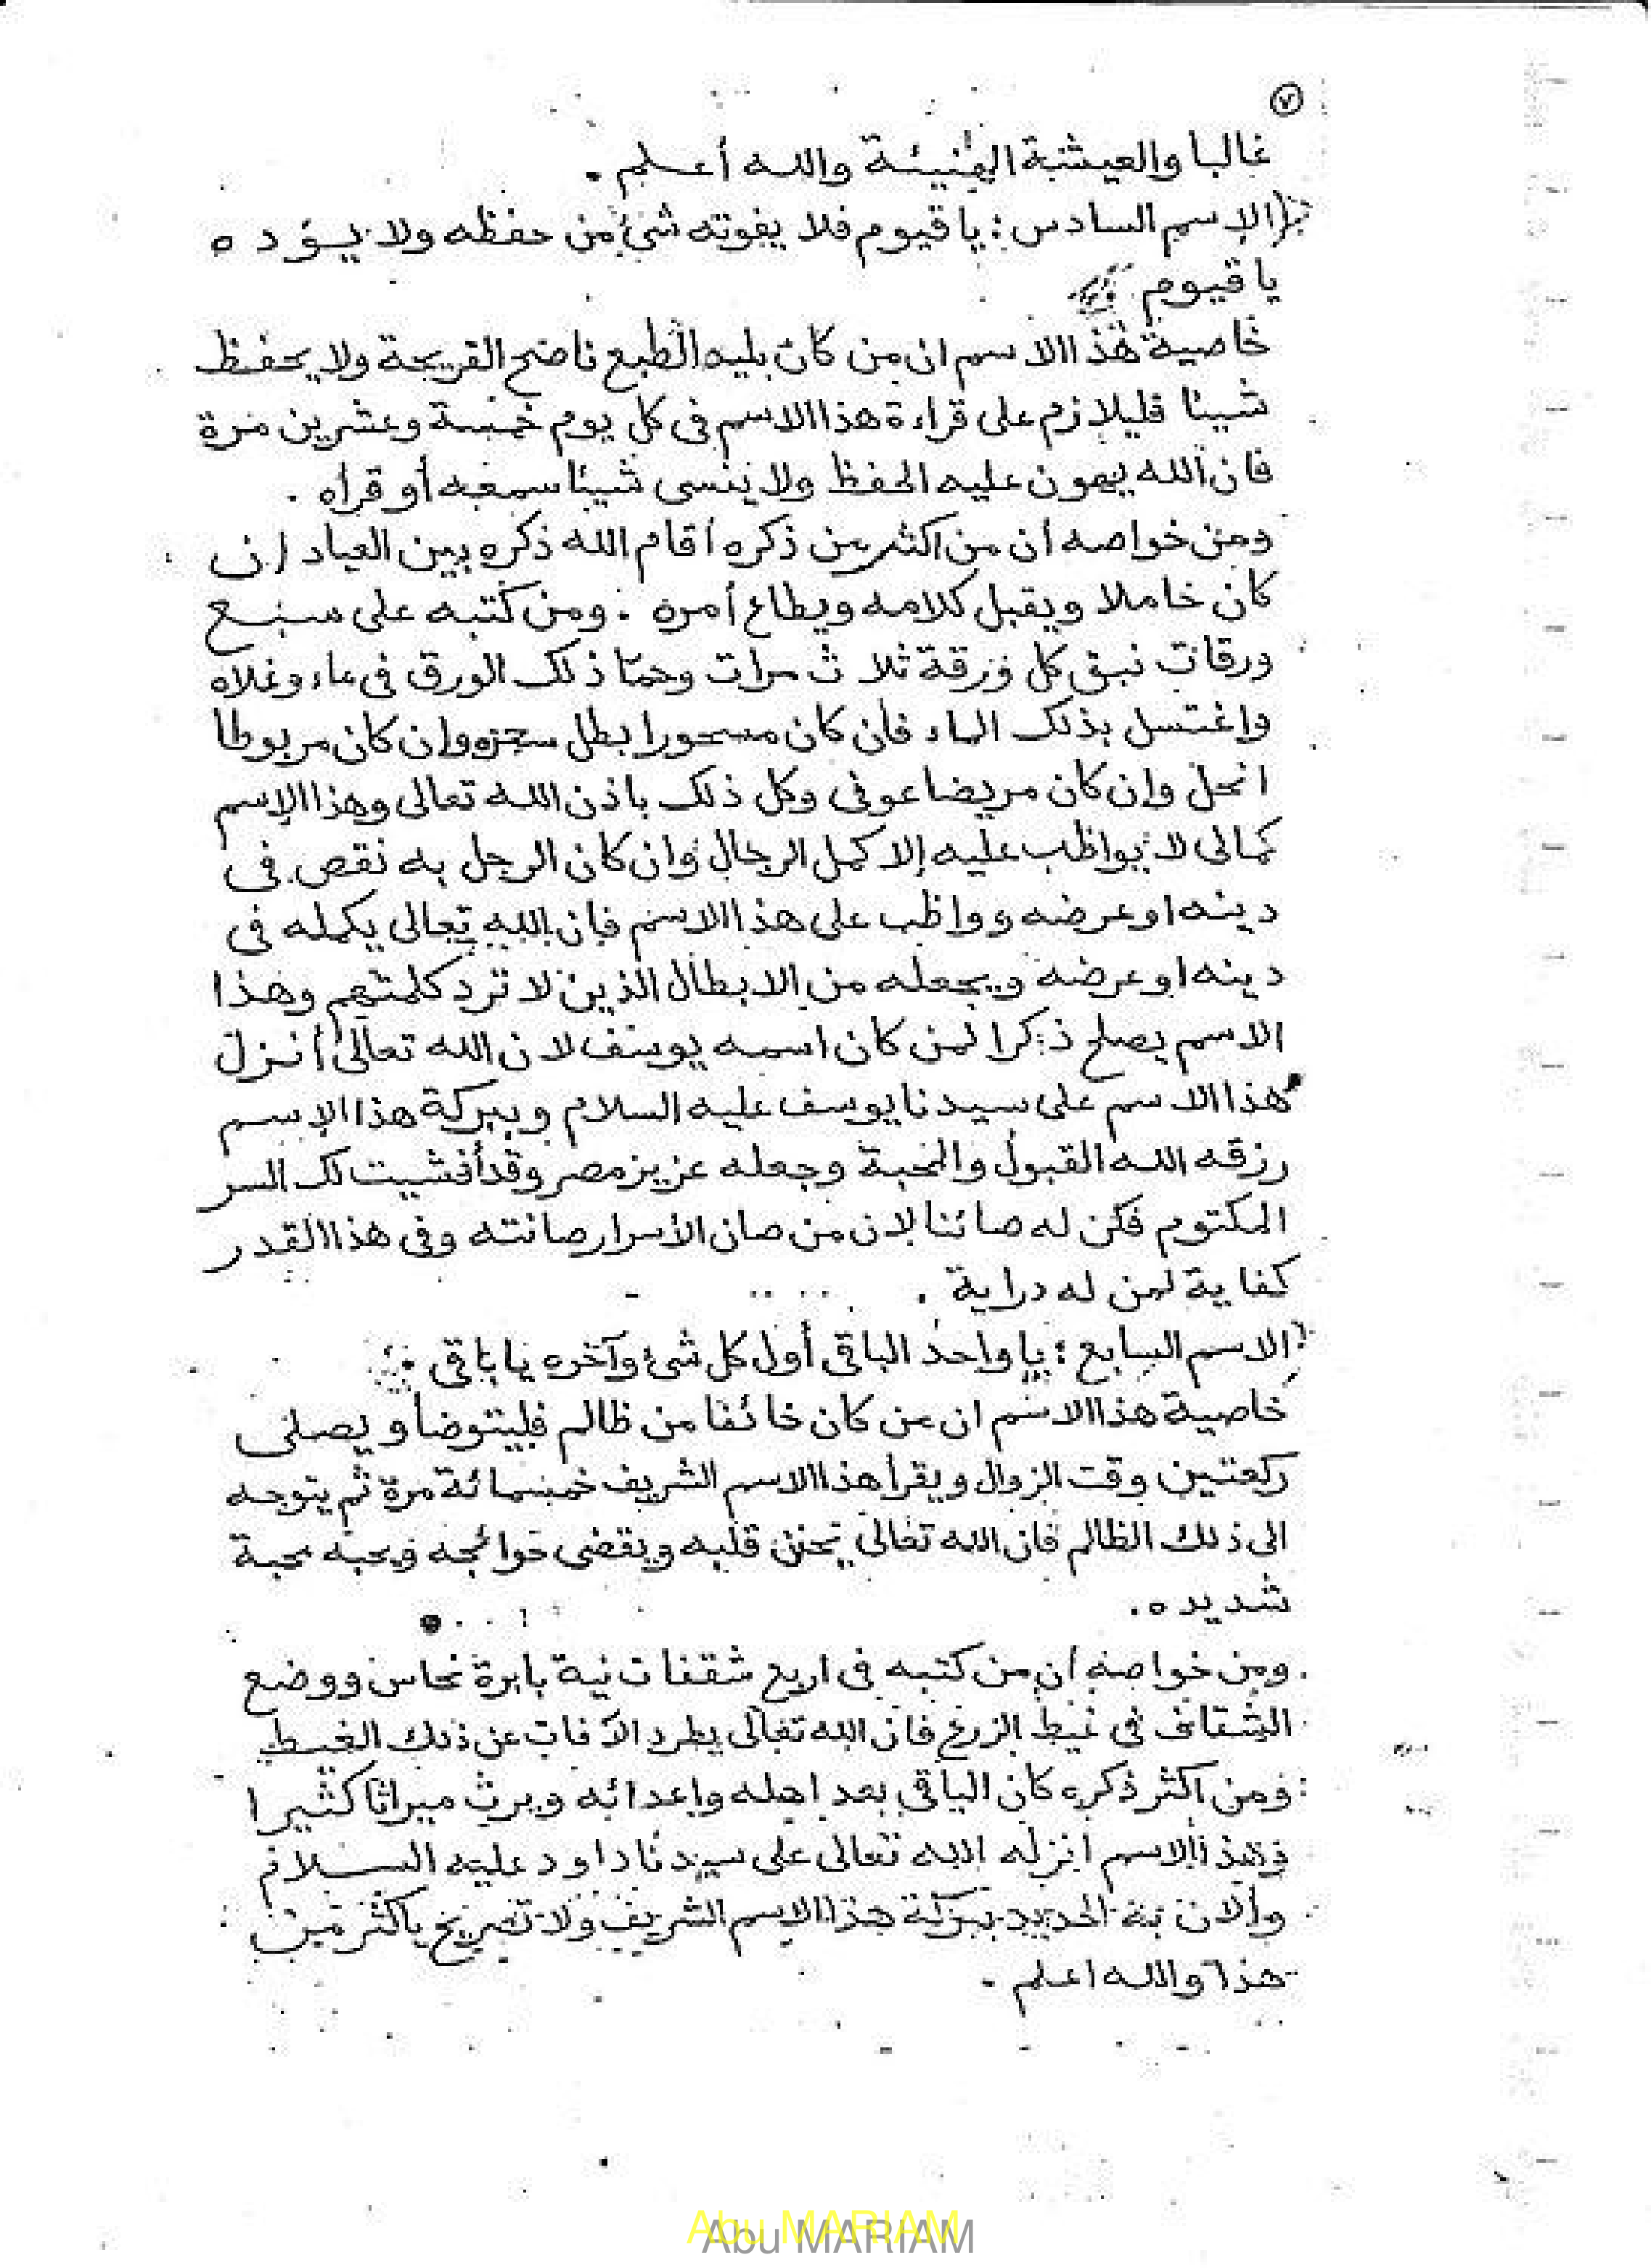 ٧
غالبا والعيشة الهنيئة والله أعلم .
(الإسم السادس : يا قيوم فلا يفوته شئ من حفظه ولا يؤده
يا قيوم
خاصية هذا الاسم ان من كان بليد الطبع ناضح القريحة ولا يحفظ
شيئا فليلازم على قراءة هذا الاسم فى كل يوم خمسة وعشرين مرة
فان الله يهون عليه الحفظ ولا ينسى شيئا سمعه أو قرأه .
ومن خواصه أن من اكثر من ذكره أقام الله ذكره بين العباد ان
كان خاملا ويقبل كلامه ويطاع أمره . ومن كتبه على سبع
ورقات نبق كل ورقة ثلاث مرات وحتا ذلك الورق فى ماء وغلاه
واغتسل بذلك الماء فان كان مسحورا بطل سحره وإن كان مربوطا
انحل وإن كان مريضا عوفى وكل ذلك باذن الله تعالى وهذا الإسم
كمالى لا يواظب عليه إلا كمل الرجال وان كان الرجل به نقص فى
دينه او عرضه وواظب على هذا الاسم فان الله تعالى يكمله فى
دينه او عرضه ويجعله من الابطال الذين لا ترد كلمتهم وهذا
الاسم يصلح ذكرا لمن كان اسمه يوسف لان الله تعالى أنزل
هذا الاسم على سيدنا يوسف عليه السلام وببركة هذا الإسم
رزقه الله القبول والمحبة وجعله عزيز مصر وقد أفشيت لك السر
المكتوم فكن له صائنا لان من صان الأسرار صانته وفى هذا القدر
كفاية لمن له دراية .
(الاسم السابع : يا واحد الباقى أول كل شئ وآخره يا باقى .
خاصية هذا الاسم ان من كان خائفا من ظالم فليتوضأ ويصلى
ركعتين وقت الزوال ويقرأ هذا الاسم الشريف خمسمائة مرة ثم يتوجه
الى ذلك الظالم فان الله تعالى يحنن قلبه ويقضى حوائجه ويحبه محبة
شديده .
ومن خواصه ان من كتبه فى اربع شقفات نية بابرة نحاس ووضع
الشقاف فى غيط الزرع فان الله تعالى يطرد الآفات عن ذلك الغيط
ومن اكثر ذكره كان الباقى بعد اهله واعدائه ويرث ميراثا كثيرا
وهذا الاسم انزله الله تعالى على سيدنا داود عليه السلام
والان له الحديد ببركة هذا الاسم الشريف ولا تصريح باكثر من
هذا والله اعلم .
Abu MARIAM